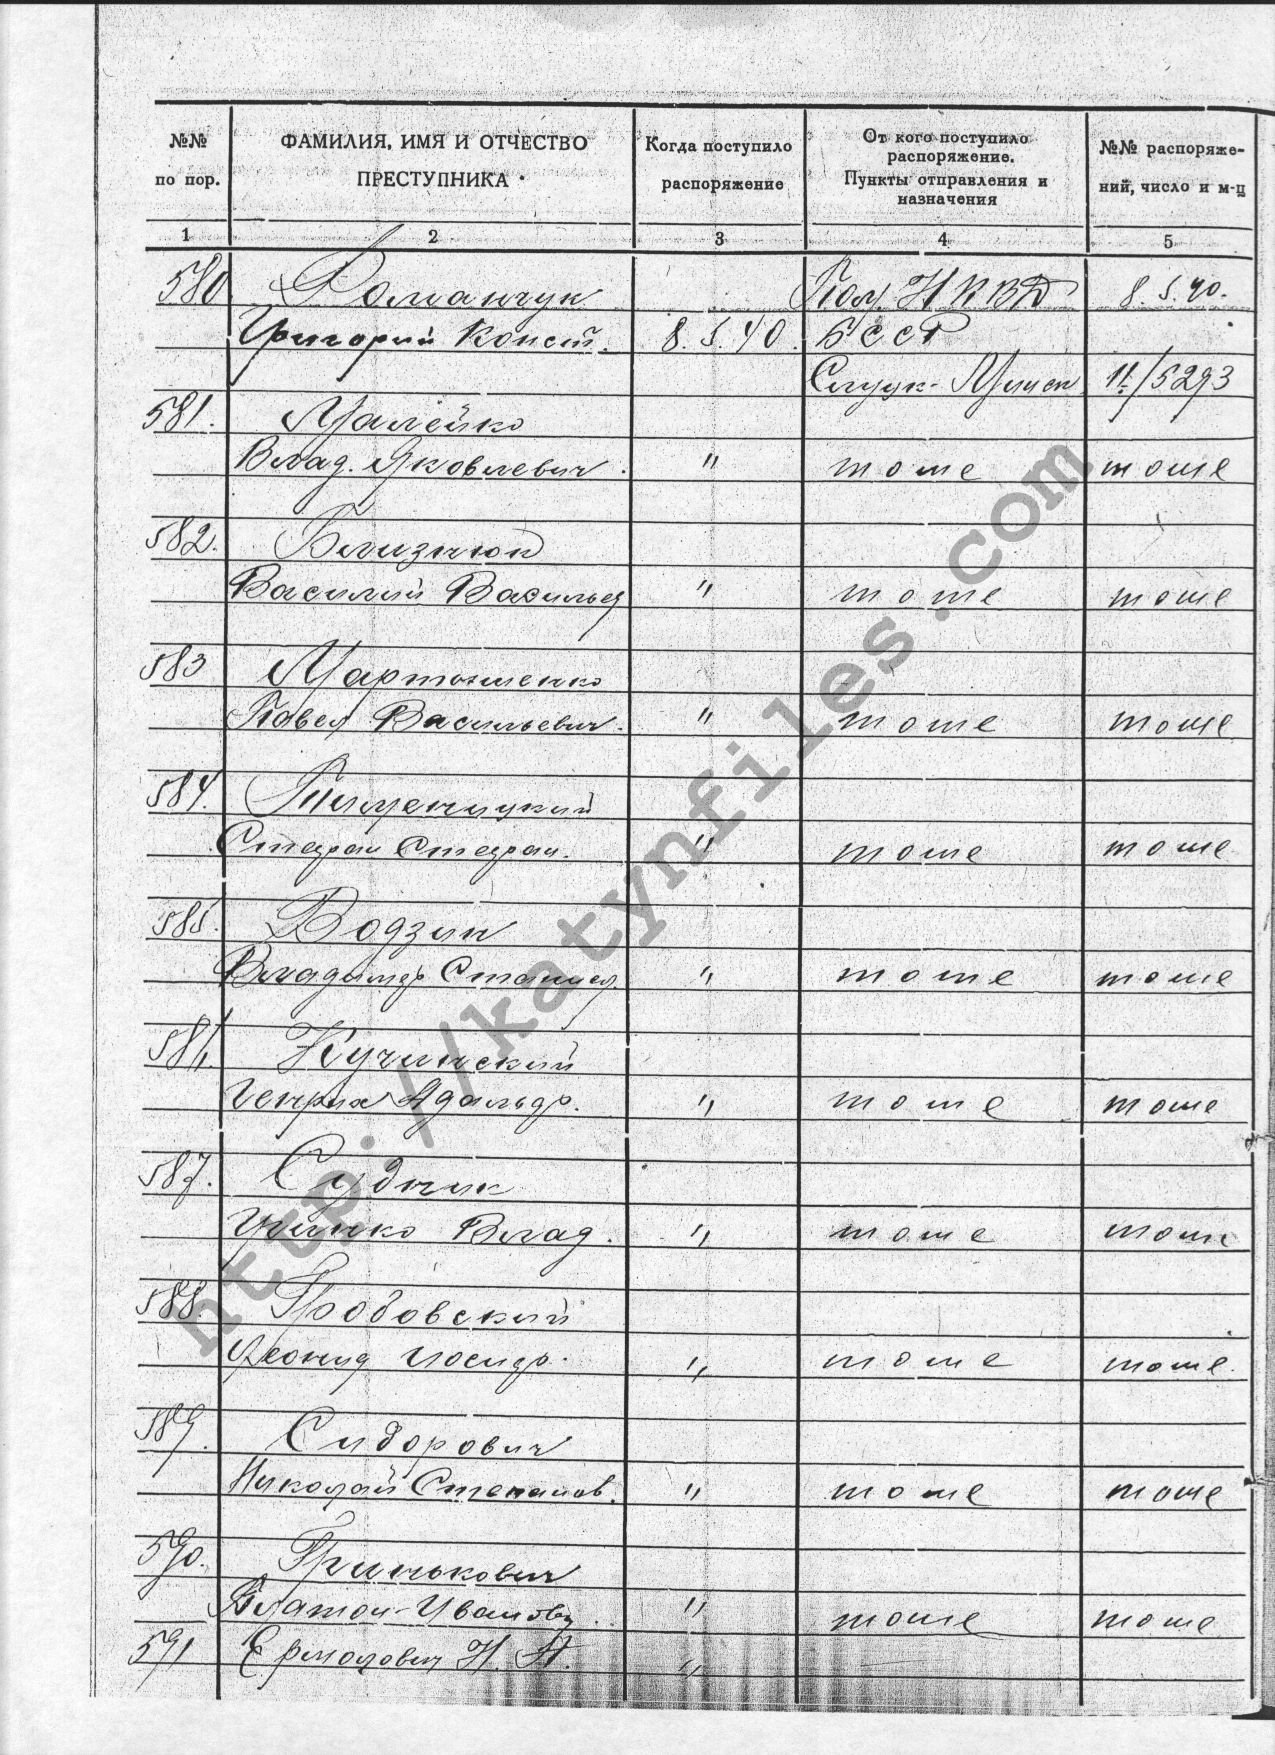 №№ по пор.
ФАМИЛИЯ, ИМЯ И ОТЧЕСТВО ПРЕСТУПНИКА
Когда поступило распоряжение
От кого поступило распоряжение. Пункты отправления и назначения
№№ распоряжений, число и м-ц
1 2 3 4 5
580 Романчук НКВД 8.5.40.
Григорий Конст. 8.5.40. БССР
Слуцк-Минск 11/5293
581. Малейко
Влад. Яковлевич. " тоже тоже
582. Близнюк
Василий Васильев " тоже тоже
583 Мартыненко
Павел Васильевич. " тоже тоже
584.
Стефан Стефан. " тоже тоже
585. Водзин
Владимир Станисл. " тоже тоже
586. Кучинский
Генрих Адольф. " тоже тоже
587. Судник
Влад. " тоже тоже
588.
Леонид Иосиф. " тоже тоже
589. Сидорович
Николай Степанов. " тоже тоже
590. Гринькович
Платон Иванов " тоже тоже
591 Ермолович Н. Н. "
http://katynfiles.com